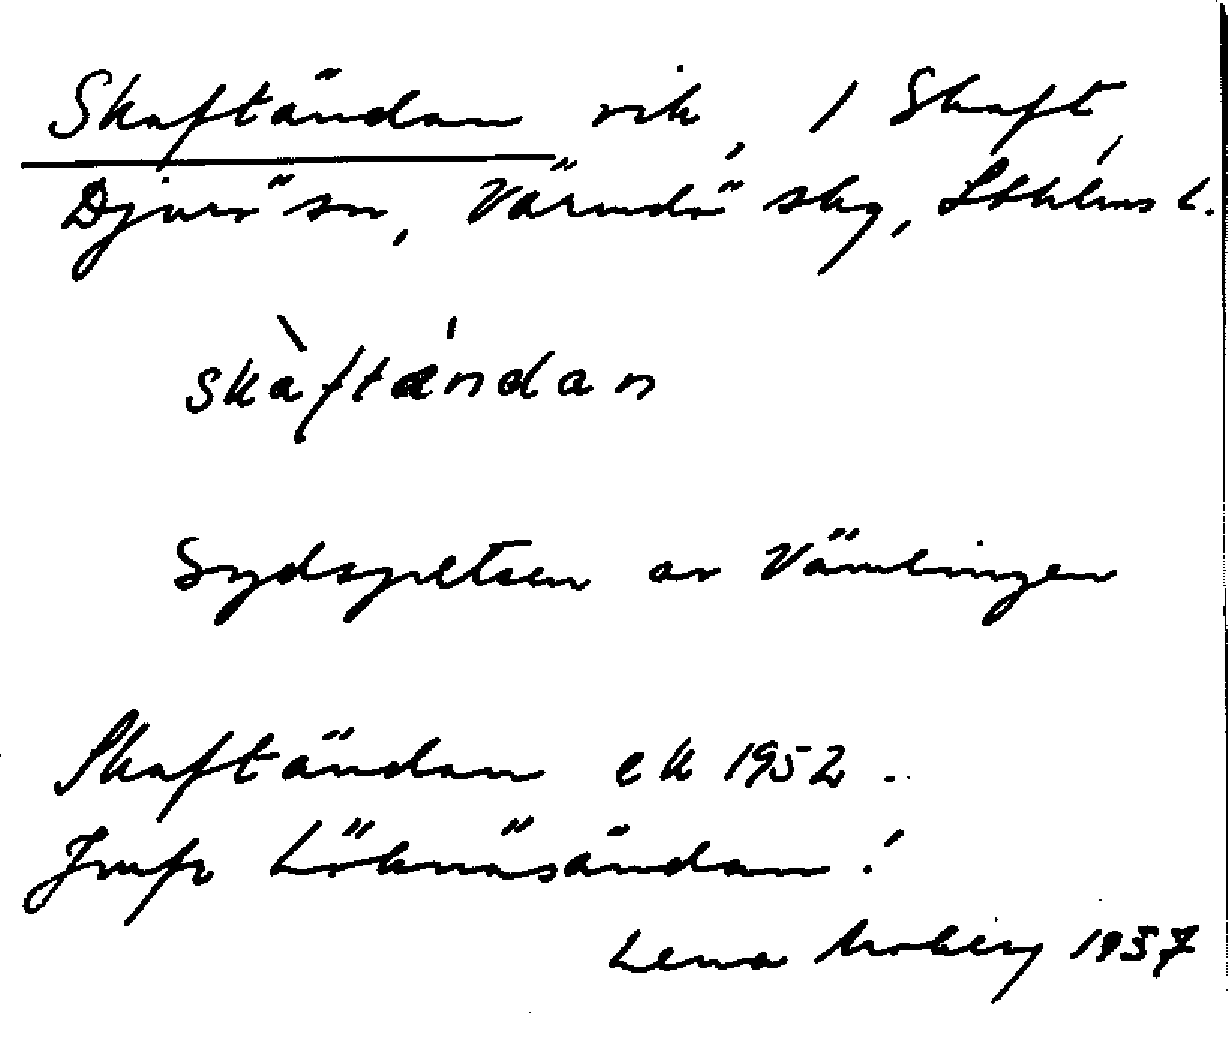 Skaftändan vik, / Skaft,
Djurö sn, Värmdö skg, Sthlms l.
skàftǽndan
Sydspetsen av Vämlingen
Skaftändan ek 1952.
Jmfr Löknäsändan!
Lena Moberg 1957